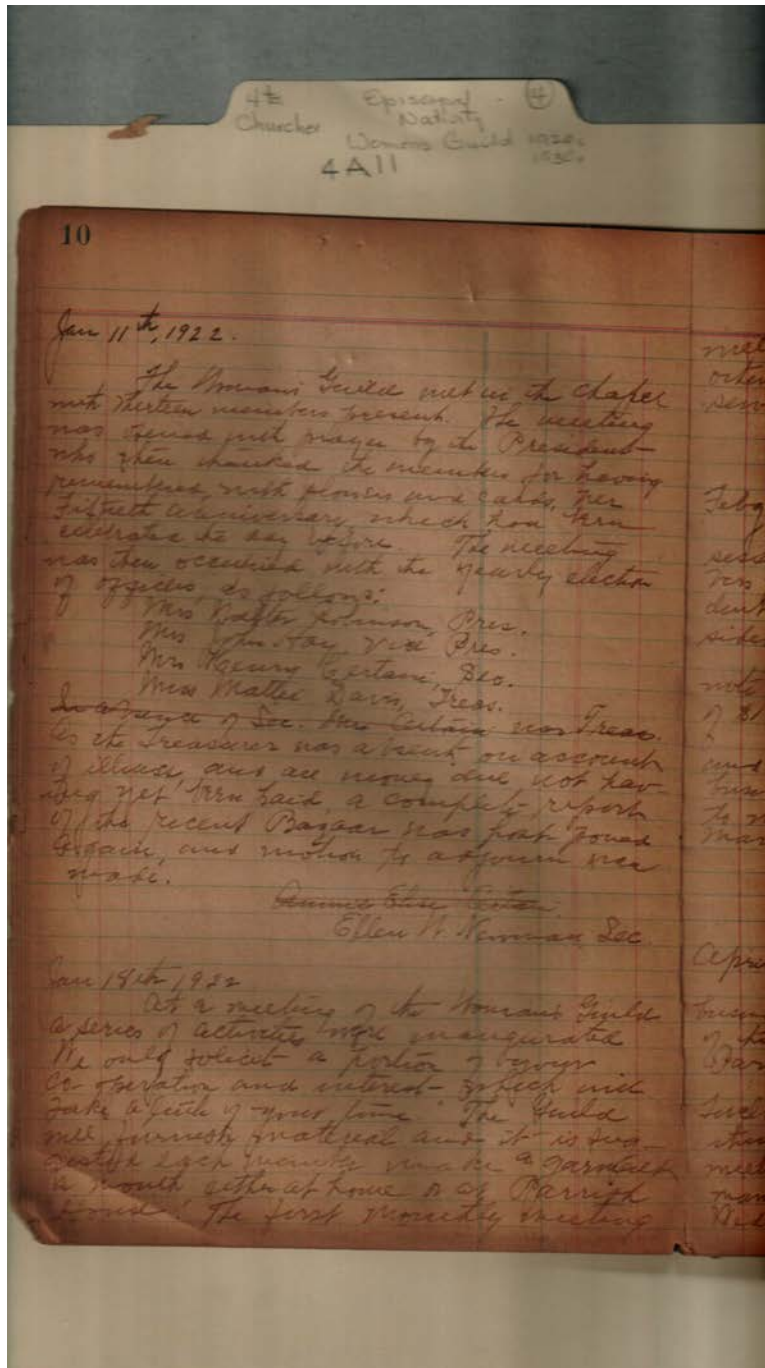 4th Episcopal - 4
Churches Nativity
Womens Guild 1920s
1930s
4A11
10
Jan 11th, 1922.
The Womans Guild met in the Chapel
with thirteen members present. The meeting
was opened with prayer by the President
who then thanked the members for having
remembered with flowers and cards, her
Fiftieth Anniversary, which had been
celebrated the day before. The meeting
was then occupied with the yearly election
of officers, as follows:
Mrs Robinson, Pres.
Mrs John Hay, Vice Pres.
Mrs Henry Certain, Sec.
Miss Mattie Davis, Treas.
In absence of Sec. Mrs Certain was Treas.
As the Treasurer was absent, on account
of illness, and all money due not hav-
ing yet been paid, a complete report
of the recent Bazaar was post poned
again, and motion to adjourn was
made.
Annie Elise Certain
Ellen N. Newman, Sec.
Jan 18th 1922
At a meeting of the Womans Guild
a series of activities were inaugurated
We only solicit a portion of your
co-operation and interest which will
take a little of your time. The Guild
will furnish material and it is sug-
gested each member make a garment
a month either at home or at Parrish
House. The first monthly meeting